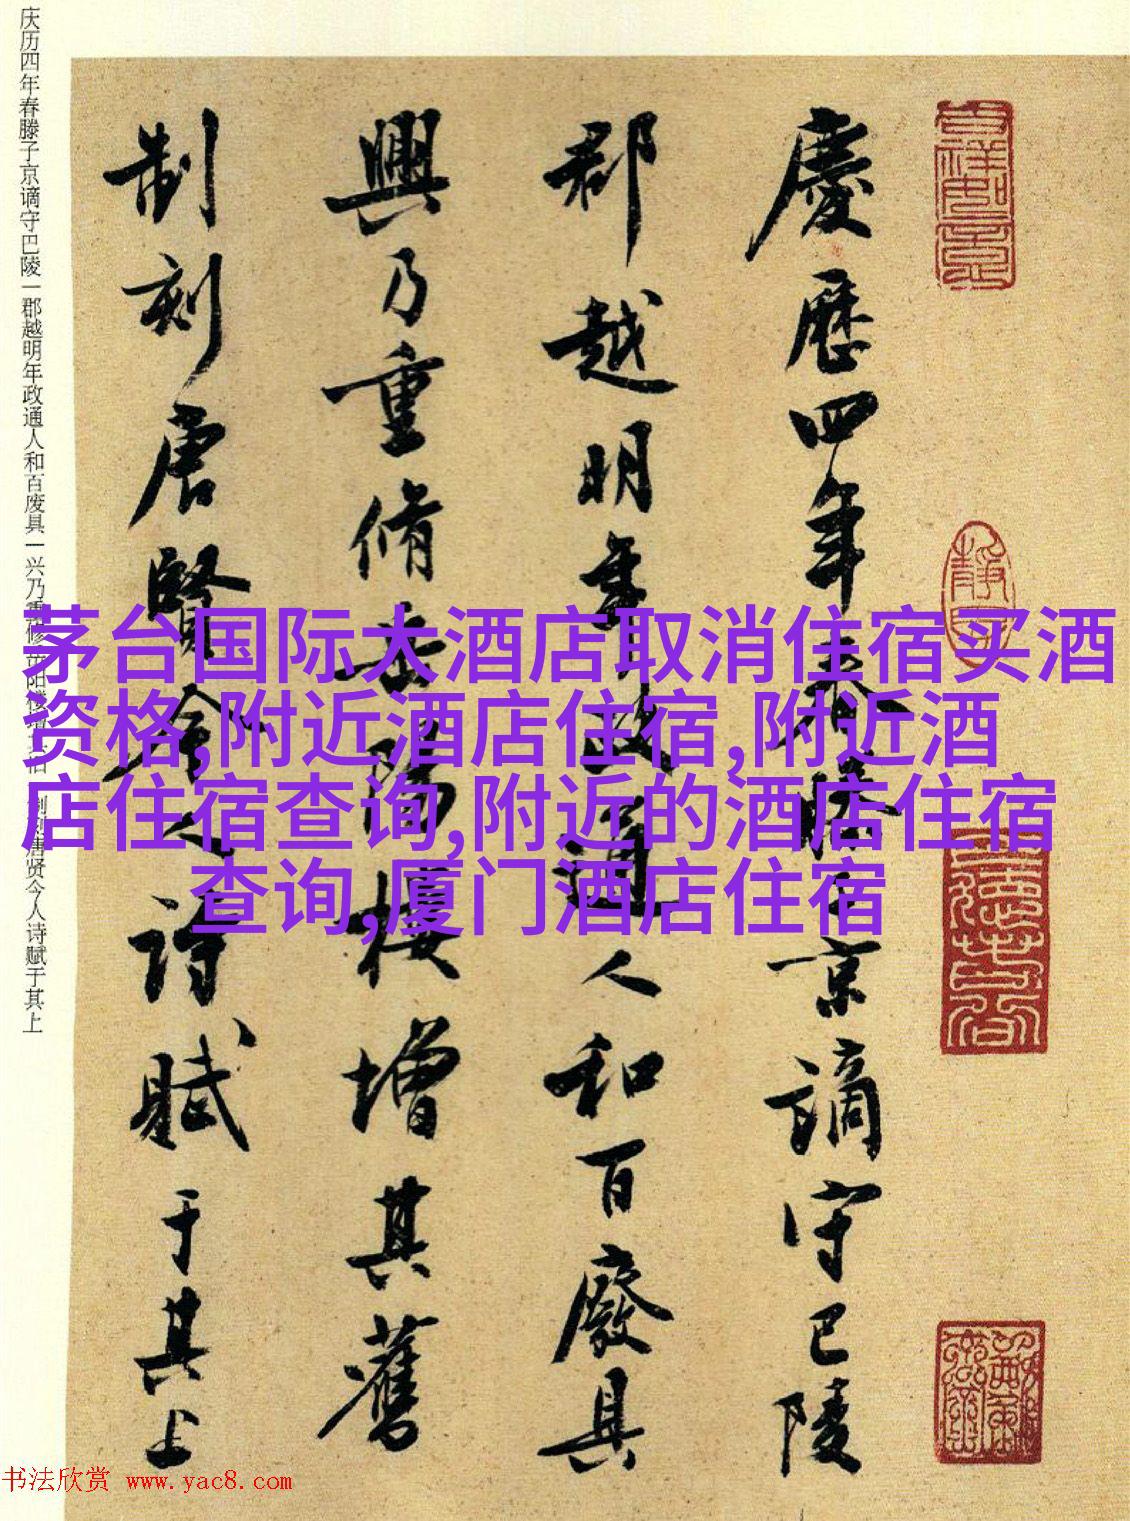 慶歷四年春滕子京謫守巴陵
郡越明年政通人和百廢具
興乃重脩岳陽樓增其舊
制刻唐賢今人詩賦于其上
庆历四年春滕子京谪守巴陵一郡越明年政通人和百废具一兴乃重修岳阳楼增其旧 制刻唐贤今人诗赋于其上
茅台国际大酒店取消住宿买酒
资格,附近酒店住宿,附近酒
店住宿查询,附近的酒店住宿
查询,厦门酒店住宿
书法欣赏 www.yac8.com